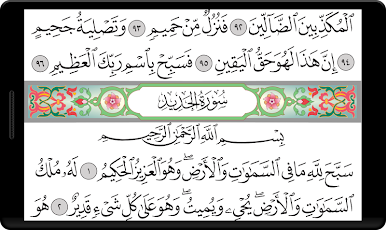 ٱلْمُكَذِّبِينَ ٱلضَّآلِّينَ ٩٢ فَنُزُلٌ مِّنْ حَمِيمٍ ٩٣ وَتَصْلِيَةُ جَحِيمٍ
٩٤ إِنَّ هَٰذَا لَهُوَ حَقُّ ٱلْيَقِينِ ٩٥ فَسَبِّحْ بِٱسْمِ رَبِّكَ ٱلْعَظِيمِ ٩٦
سُورَةُ الْحَدِيدِ
بِسْمِ ٱللَّهِ ٱلرَّحْمَٰنِ ٱلرَّحِيمِ
سَبَّحَ لِلَّهِ مَا فِى ٱلسَّمَٰوَٰتِ وَٱلْأَرْضِ ۖ وَهُوَ ٱلْعَزِيزُ ٱلْحَكِيمُ ١ لَهُۥ مُلْكُ
ٱلسَّمَٰوَٰتِ وَٱلْأَرْضِ ۖ يُحْىِۦ وَيُمِيتُ ۖ وَهُوَ عَلَىٰ كُلِّ شَىْءٍ قَدِيرٌ ٢ هُوَ